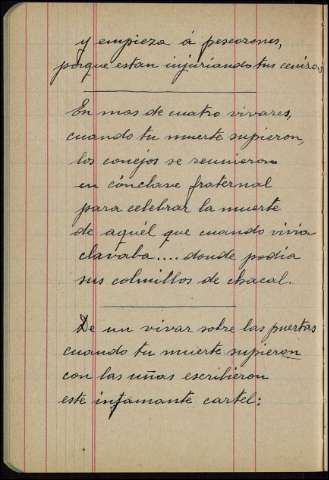 y empieza á pescozones,
porque estan injuriando tus cenizas
En mas de cuatro vivares,
cuando tu muerte supieron,
los conejos se reunieron
en cónclave fraternal
para celebrar la muerte
de aquel que cuando vivía
clavaba.... donde podía
sus colmillos de chacal.
De un vivar sobre las puertas
cuando tu muerte supieron
con las uñas escribieron
este infamante cartel: